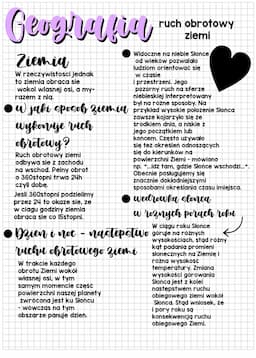 Geografia
ruch obrotowy
ziemi
Ziemia
W rzeczywistosci jednak
to ziemia obraca sie
wokol wlasnej osi, a my-
razem z nią.
W jaki sposob ziemia
wykonuje ruch
obrotowy?
Ruch obrotowy ziemi
odbywa sie z zachodu
na wschod. Pelny obrot
o 360stopni trwa 24h
czyli dobę.
Jesli 360stopni podzielimy
przez 24 to okaze sie, ze
w ciagu godziny ziemia
obraca sie co 15stopni.
Dzien i noc - nastepstwo
ruchu obrotowego ziemi
W trakcie każdego
obrotu Ziemi wokół
własnej osi, w tym
samym momencie część
powierzchni naszej planety
zwrócona jest ku Słońcu
- wówczas na tym
obszarze panuje dzień.
Widoczne na niebie Słonce
od wieków pozwalało
ludziom orientować się
w czasie
i przestrzeni. Jego
pozorny ruch na sferze
niebieskiej interpretowany
był na różne sposoby. Na
przykład wysokie położenie Słońca
zawsze kojarzyło się ze
środkiem dnia, a niskie z
jego początkiem lub
końcem. Często używało
się tez określeń odnoszących
się do kierunków na
powierzchni Ziemi - mówiono
np. "...idź tam, gdzie Słońce wschodzi...".
Obecnie posługujemy się
znacznie dokładniejszymi
sposobami określania czasu i miejsca.
wedrowka slonca
w roznych porach roku
W ciągu roku Słońce
góruje na różnych
wysokościach, stąd różny
kąt padania promieni
słonecznych na Ziemię i
różna wysokość
temperatury. Zmiana
wysokości górowania
Słońca jest z kolei
następstwem ruchu
obiegowego ziemi wokół
Słońca. Stąd wniosek, ze
i pory roku są
konsekwencją ruchu
obiegowego Ziemi.